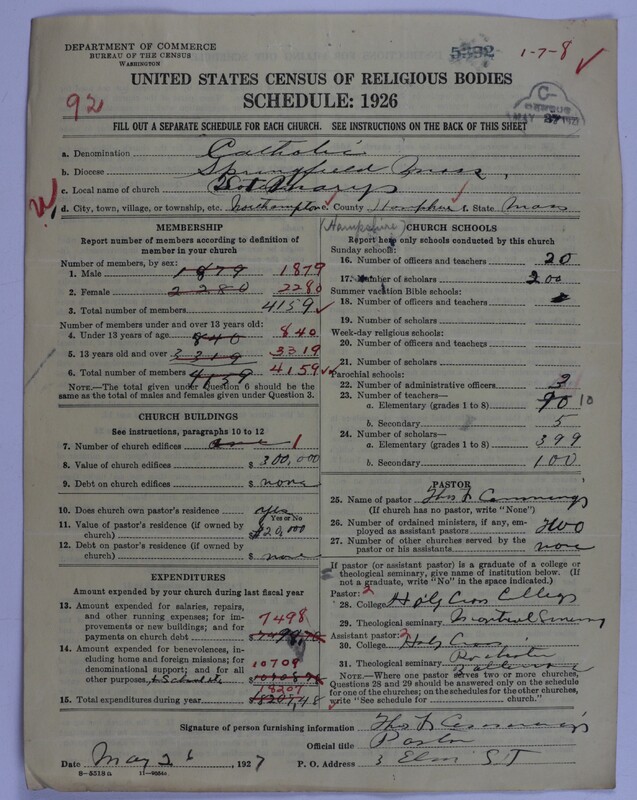 DEPARTMENT OF COMMERCE
BUREAU OF THE CENSUS
WASHINGTON
5332
1-7-8
UNITED STATES CENSUS OF RELIGIOUS BODIES
SCHEDULE: 1926
92
CENSUS
MAY 27 1927
FILL OUT A SEPARATE SCHEDULE FOR EACH CHURCH. SEE INSTRUCTIONS ON THE BACK OF THIS SHEET
a. Denomination Catholic
b. Diocese Springfield Mass.
c. Local name of church St Marys
d. City, town, village, or township, etc. Northampton County Hampshire State Mass
(Hampshire)
MEMBERSHIP
Report number of members according to definition of
member in your church
Number of members, by sex:
1. Male 1879 1879
2. Female 2280 2280
3. Total number of members 4159
Number of members under and over 13 years old:
4. Under 13 years of age 840 840
5. 13 years old and over 3319 3319
6. Total number of members 4159 4159
NOTE.—The total given under Question 6 should be the
same as the total of males and females given under Question 3.
CHURCH BUILDINGS
See instructions, paragraphs 10 to 12
7. Number of church edifices one 1
8. Value of church edifices $ 300,000
9. Debt on church edifices $ none
10. Does church own pastor's residence yes
Yes or No
11. Value of pastor's residence (if owned by
church) $ 20,000
12. Debt on pastor's residence (if owned by
church) $ none
EXPENDITURES
Amount expended by your church during last fiscal year
13. Amount expended for salaries, repairs,
and other running expenses; for im-
provements or new buildings; and for
payments on church debt 7498
14. Amount expended for benevolences, in-
cluding home and foreign missions; for
denominational support; and for all
other purposes, & Schools 10709
15. Total expenditures during year 18207
CHURCH SCHOOLS
Report here only schools conducted by this church
Sunday schools:
16. Number of officers and teachers 20
17. Number of scholars 200
Summer vacation Bible schools:
18. Number of officers and teachers
19. Number of scholars
Week-day religious schools:
20. Number of officers and teachers
21. Number of scholars
Parochial schools:
22. Number of administrative officers 3
23. Number of teachers—
a. Elementary (grades 1 to 8) 10
b. Secondary 5
24. Number of scholars—
a. Elementary (grades 1 to 8) 399
b. Secondary 100
PASTOR
25. Name of pastor Thos F Cummings
(If church has no pastor, write "None")
26. Number of ordained ministers, if any, em-
ployed as assistant pastors two
27. Number of other churches served by the
pastor or his assistants none
If pastor (or assistant pastor) is a graduate of a college or
theological seminary, give name of institution below. (If
not a graduate, write "No" in the space indicated.)
Pastor: 2
28. College Holy Cross College
29. Theological seminary Montreal Seminary
Assistant pastor: 2
30. College Holy Cross
31. Theological seminary Rochester
Baltimore
NOTE.—Where one pastor serves two or more churches,
Questions 28 and 29 should be answered only on the schedule
for one of the churches; on the schedules for the other churches,
write "See schedule for church."
Signature of person furnishing information Thos F Cummings
Official title Pastor
Date May 26, 1927 P. O. Address 3 Elm ST
8-5518a 11-9554a